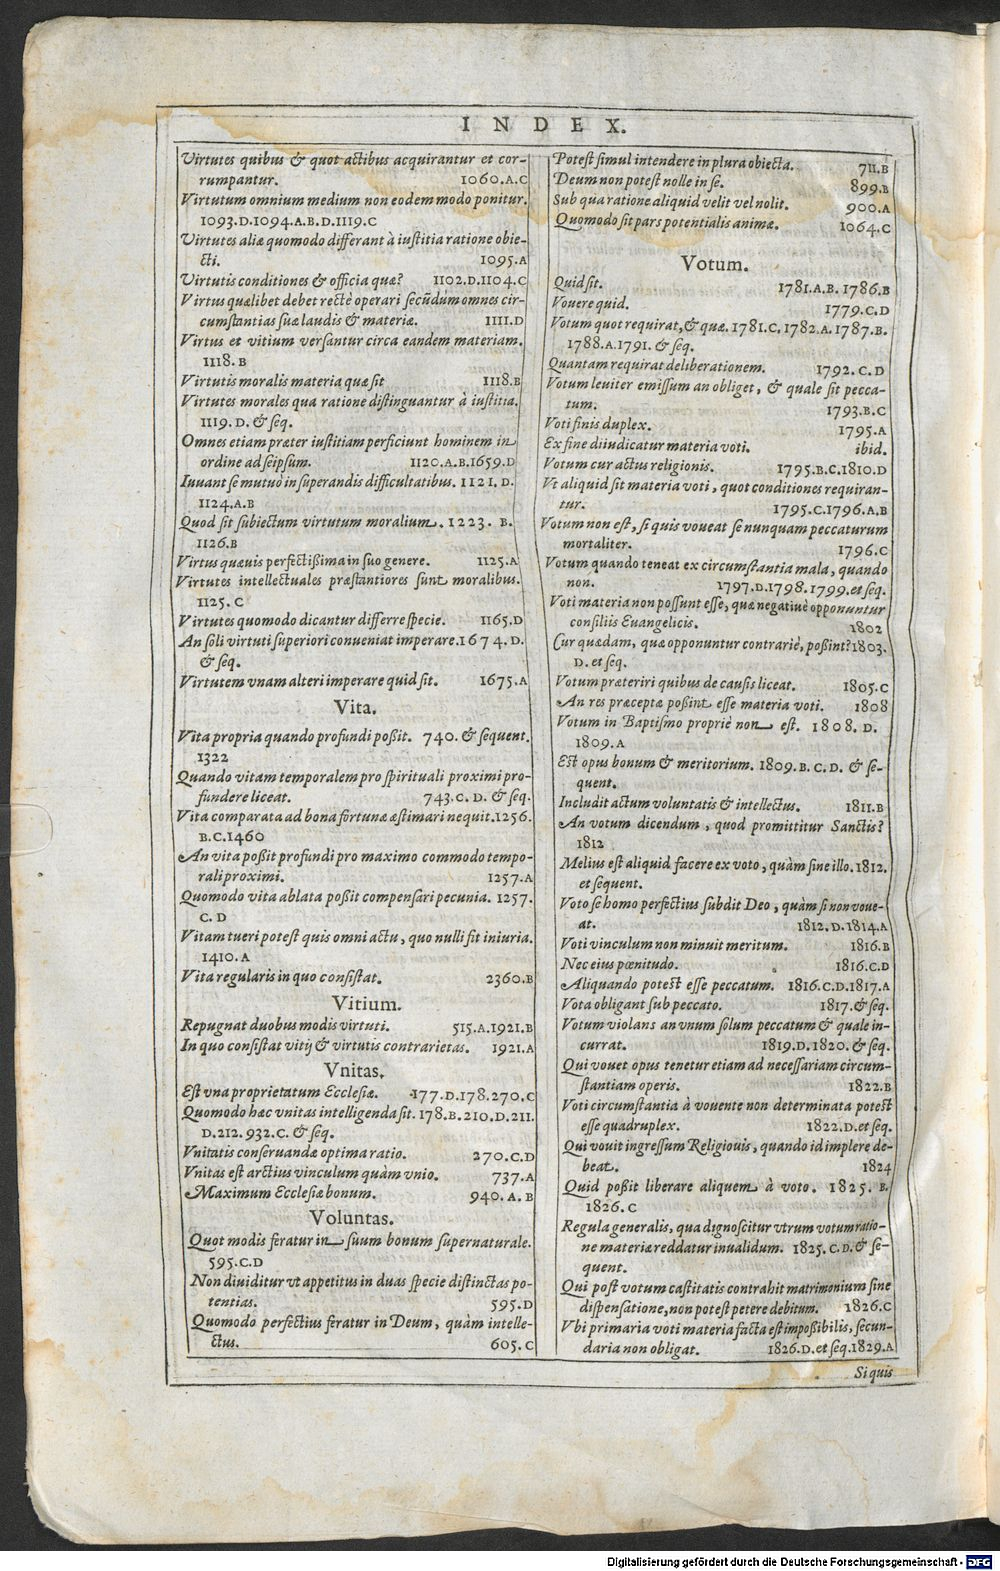 INDEX.
Virtutes quibus & quot actibus acquirantur et cor-
rumpantur. 1060.A.C
Virtutum omnium medium non eodem modo ponitur.
1093.D.1094.A.B.D.1119.C
Virtutes aliæ quomodo differant à iustitia ratione obie-
cti. 1095.A
Virtutis conditiones & officia quæ? 1102.D.1104.C
Virtus quælibet debet rectè operari secũdùm omnes cir-
cumstantias suæ laudis & materiæ. 1111.D
Virtus et vitium versantur circa eandem materiam.
1118.B
Virtutis moralis materia quæ sit 1118.B
Virtutes morales qua ratione distinguantur à iustitia.
1119. D. & seq.
Omnes etiam præter iustitiam perficiunt hominem in
ordine ad seipsum. 1120.A.B.1659.D
Iuuant se mutuò in superandis difficultatibus. 1121. D.
1124.A.B
Quod sit subiectum virtutum moralium. 1223. B.
1126.B
Virtus quæuis perfectißima in suo genere. 1125.A
Virtutes intellectuales præstantiores sunt moralibus.
1125. C
Virtutes quomodo dicantur differre specie. 1165.D
An soli virtuti superiori conueniat imperare. 1674. D.
& seq.
Virtutem vnam alteri imperare quid sit. 1675.A
Vita.
Vita propria quando profundi poßit. 740. & sequent.
1322
Quando vitam temporalem pro spirituali proximi pro-
fundere liceat. 743.C. D. & seq.
Vita comparata ad bona fortunæ æstimari nequit. 1256.
B.C.1460
An vita poßit profundi pro maximo commodo tempo-
rali proximi. 1257.A
Quomodo vita ablata poßit compensari pecunia. 1257.
C. D
Vitam tueri potest quis omni actu, quo nulli fit iniuria.
1410.A
Vita regularis in quo consistat. 2360.B
Vitium.
Repugnat duobus modis virtuti. 515.A.1921.B
In quo consistat vitij & virtutis contrarietas. 1921.A
Vnitas.
Est vna proprietatum Ecclesiæ. 177.D.178.270.C
Quomodo hæc vnitas intelligenda sit. 178.B.210.D.211.
D.212.932.C. & seq.
Vnitatis conseruandæ optima ratio. 270.C.D
Vnitas est arctius vinculum quàm vnio. 737.A
Maximum Ecclesiæ bonum. 940.A.B
Voluntas.
Quot modis feratur in suum bonum supernaturale.
595.C.D
Non diuiditur vt appetitus in duas specie distinctas po-
tentias. 595.D
Quomodo perfectius feratur in Deum, quàm intelle-
ctus. 605.C
Potest simul intendere in plura obiecta. 711.B
Deum non potest nolle in se. 899.B
Sub qua ratione aliquid velit vel nolit. 900.A
Quomodo sit pars potentialis animæ. 1064.C
Votum.
Quid sit. 1781.A.B.1786.B
Vouere quid. 1779.C.D
Votum quot requirat, & quæ. 1781.C.1782.A.1787.B.
1788.A.1791. & seq.
Quantam requirat deliberationem. 1792.C.D
Votum leuiter emissum an obliget, & quale sit pecca-
tum. 1793.B.C
Voti finis duplex. 1795.A
Ex fine diiudicatur materia voti. ibid.
Votum cur actus religionis. 1795.B.C.1810.D
Vt aliquid sit materia voti, quot conditiones requiran-
tur. 1795.C.1796.A,B
Votum non est, si quis voueat se nunquam peccaturum
mortaliter. 1796.C
Votum quando teneat ex circumstantia mala, quando
non. 1797.D.1798.1799.et seq.
Voti materia non possunt esse, quæ negatiuè opponuntur
consiliis Euangelicis. 1802
Cur quædam, quæ opponuntur contrariè, poßint? 1803.
D. et seq.
Votum præteriri quibus de causis liceat. 1805.C
An res præceptæ poßint esse materia voti. 1808
Votum in Baptismo propriè non est. 1808. D.
1809.A
Est opus bonum & meritorium. 1809.B.C.D. & se-
quent.
Includit actum voluntatis & intellectus. 1811.B
An votum dicendum, quod promittitur Sanctis?
1812
Melius est aliquid facere ex voto, quàm sine illo. 1812.
et sequent.
Voto se homo perfectius subdit Deo, quàm si non voue-
at. 1812.D.1814.A
Voti vinculum non minuit meritum. 1816.B
Nec eius pœnitudo. 1816.C.D
Aliquando potest esse peccatum. 1816.C.D.1817.A
Vota obligant sub peccato. 1817.& seq.
Votum violans an vnum solum peccatum & quale in-
currat. 1819.D.1820. & seq.
Qui vouet opus tenetur etiam ad necessariam circum-
stantiam operis. 1822.B
Voti circumstantia à vouente non determinata potest
esse quadruplex. 1822.D.et seq.
Qui vouit ingressum Religiouis, quando id implere de-
beat. 1824
Quid poßit liberare aliquem à voto. 1825. B.
1826.C
Regula generalis, qua dignoscitur vtrum votum ratio-
ne materiæ reddatur inualidum. 1825.C.D.& se-
quent.
Qui post votum castitatis contrahit matrimonium sine
dispensatione, non potest petere debitum. 1826.C
Vbi primaria voti materia facta est impoßibilis, secun-
daria non obligat. 1826.D.et seq.1829.A
Si quis
Digitalisierung gefördert durch die Deutsche Forschungsgemeinschaft - DFG